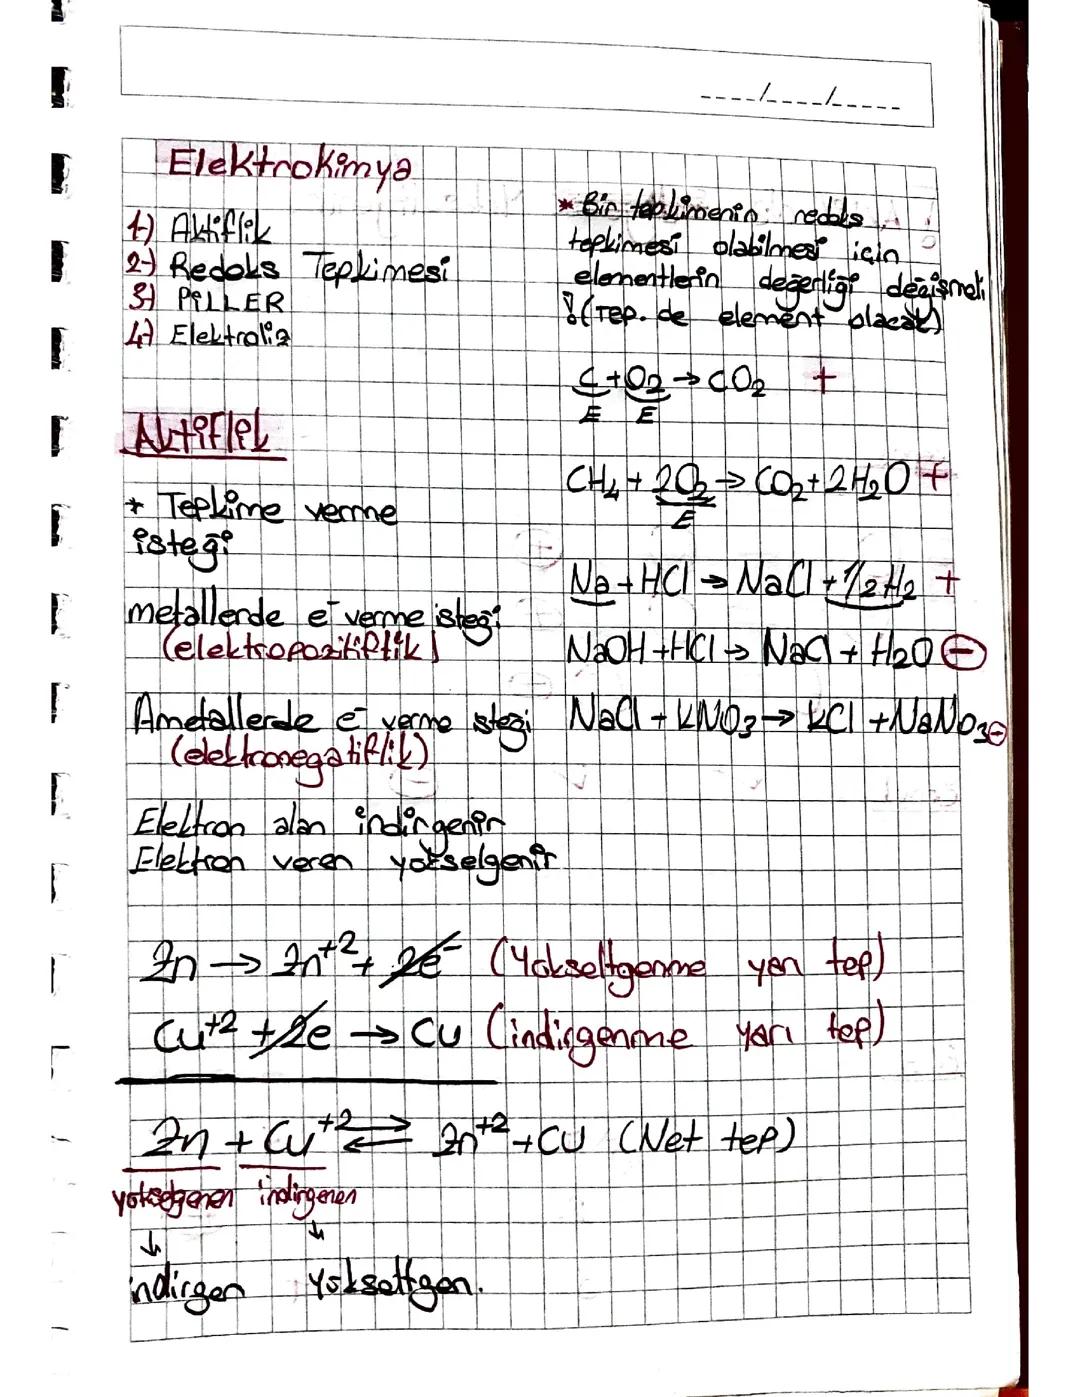 ----/----/-----
Elektrokimya
1-) Aktiflik
2-) Redoks Tepkimesi
3-) PİLLER
4-) Elektroliz
Aktiflik
* Tepkime verme
isteği
metallerde e⁻ verme isteği
(elektropozitiflik)
Ametallerde e⁻ verme isteği
(elektronegatiflik)
Elektron alan indirgenir
Elektron veren yükselgenir
* Bir tepkimenin redoks
tepkimesi olabilmesi için
elementlerin değerliği değişmeli
!(Tep. de element olacak)
C + O₂ → CO₂ +
E E
CH₄ + 2O₂ → CO₂ + 2H₂O +
E
Na + HCl → NaCl + 1/2 H₂ +
NaOH + HCl → NaCl + H₂O ⊖
NaCl + KNO₃ → KCl + NaNO₃ ⊖
Zn → Zn⁺² + 2e⁻ (Yükseltgenme yarı tep)
Cu⁺² + 2e → Cu (indirgenme yarı tep)
Zn + Cu⁺² ⇌ Zn⁺² + Cu (Net tep)
yükselgenen indirgenen
↓ ↓
indirgen yükseltgen.